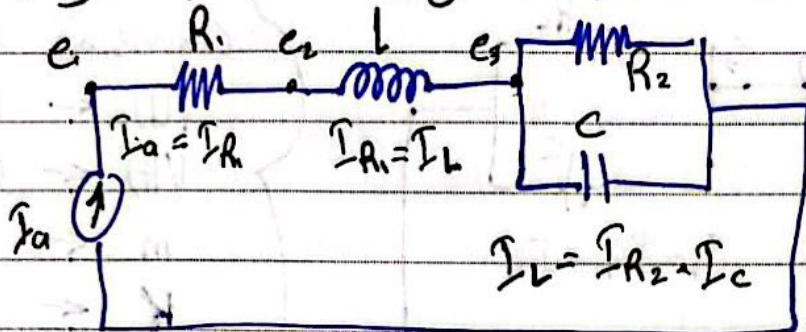 R₁ e₂ L e₃
e₁ R₂
C
Ia = IR₁ IR₁ = IL
Ia
IL = IR₂ + Ic